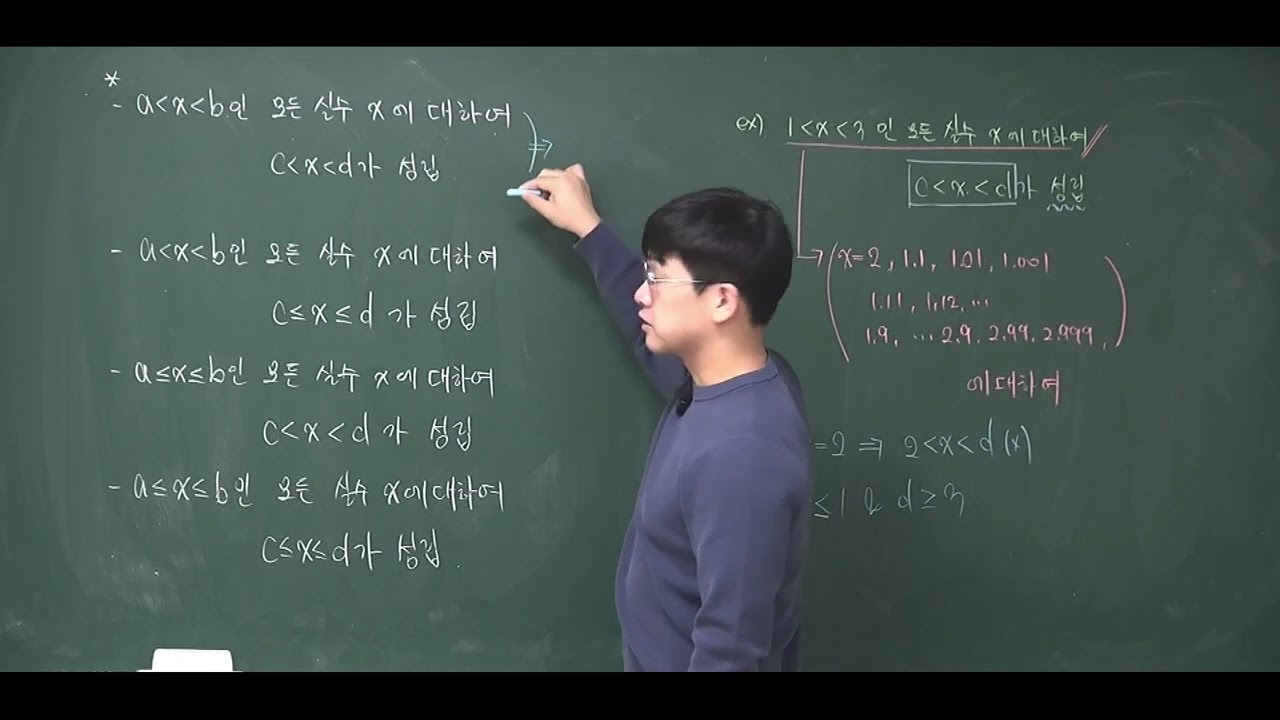 *
- a<x<b인 모든 실수 x에 대하여
c<x<d가 성립
⇒
- a<x<b인 모든 실수 x에 대하여
c≤x≤d 가 성립
- a≤x≤b인 모든 실수 x에 대하여
c<x<d 가 성립
- a≤x≤b인 모든 실수 x에 대하여
c≤x≤d가 성립
ex) 1<x<3 인 모든 실수 x에 대하여
c<x<d가 성립
x=2, 1.1, 1.01, 1.001
1.11, 1.12, ...
1.9, ... 2.9, 2.99, 2.999,
에 대하여
=2 ⇒ 2<x<d (x)
≤1 & d≥3